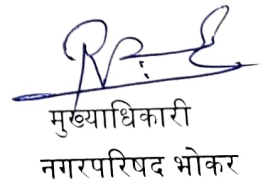 मुख्याधिकारी
नगरपरिषद भोकर